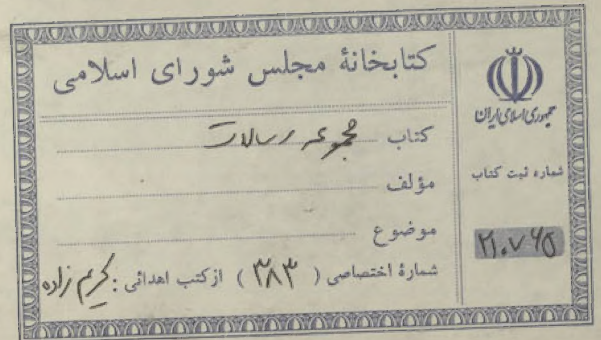 کتابخانهٔ مجلس شورای اسلامی
کتاب مجموعه رسالات
مؤلف
موضوع
شمارهٔ اختصاصی ( ۳۸۳ ) از کتب اهدائی : کریم زاده
جمهوری اسلامی ایران
شماره ثبت کتاب
۲۱۰۷۶۵